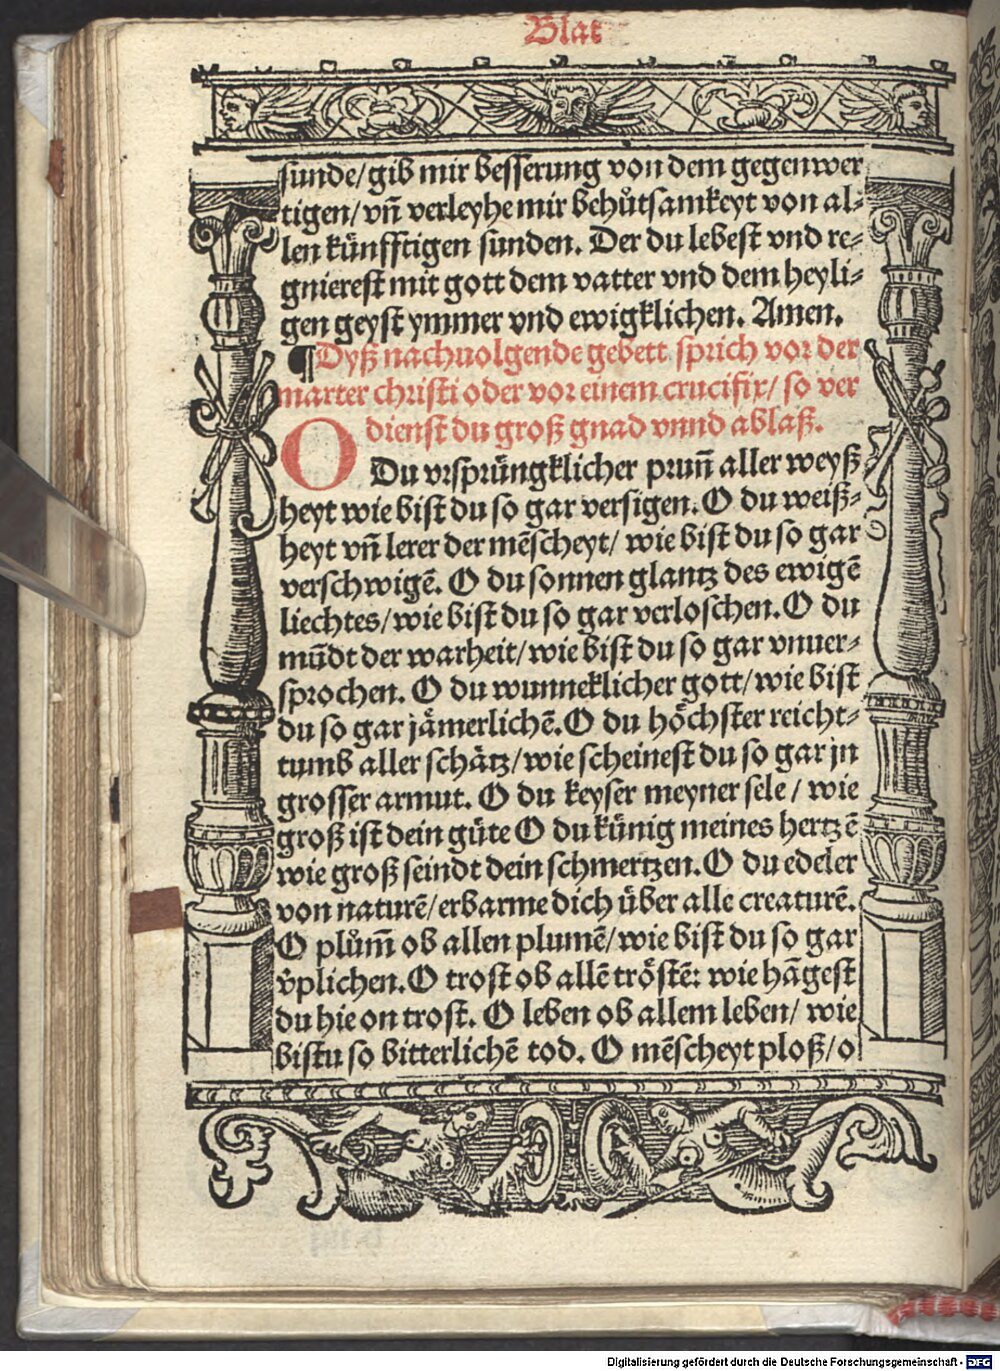 Blat
sunde/gib mir besserung von dem gegenwer
tigen/vñ verleyhe mir behůtsamkeyt von al⸗
len künfftigen sunden. Der du lebest vnd re⸗
gnierest mit gott dem vatter vnd dem heyli⸗
gen geyst ymmer vnd ewigklichen. Amen.
¶Dyß nachuolgende gebett sprich vor der
marter christi oder vor einem crucifix/ so ver
dienst du groß gnad vnnd ablaß.
O Du vrsprüngklicher prun̄ aller weyß
heyt wie bist du so gar versigen. O du weiß⸗
heyt vñ lerer der mēscheyt/ wie bist du so gar
verschwigē. O du sonnen glantz des ewigē
liechtes/wie bist du so gar verloschen. O du
mūdt der warheit/wie bist du so gar vnuer⸗
sprochen. O du wunneklicher gott/wie bist
du so gar jämerlichē. O du höchster reicht⸗
tumb aller schätz/wie scheinest du so gar jn
grosser armut. O du keyser meyner sele / wie
groß ist dein güte O du künig meines hertzē
wie groß seindt dein schmertzen. O du edeler
von naturē/erbarme dich über alle creaturē.
O plům̄ ob allen plumē/wie bist du so gar
v̇plichen. O trost ob allē tröstē: wie hāgest
du hie on trost. O leben ob allem leben/ wie
bistu so bitterlichē tod. O mēscheyt ploß/o
Digitalisierung gefördert durch die Deutsche Forschungsgemeinschaft - DFG